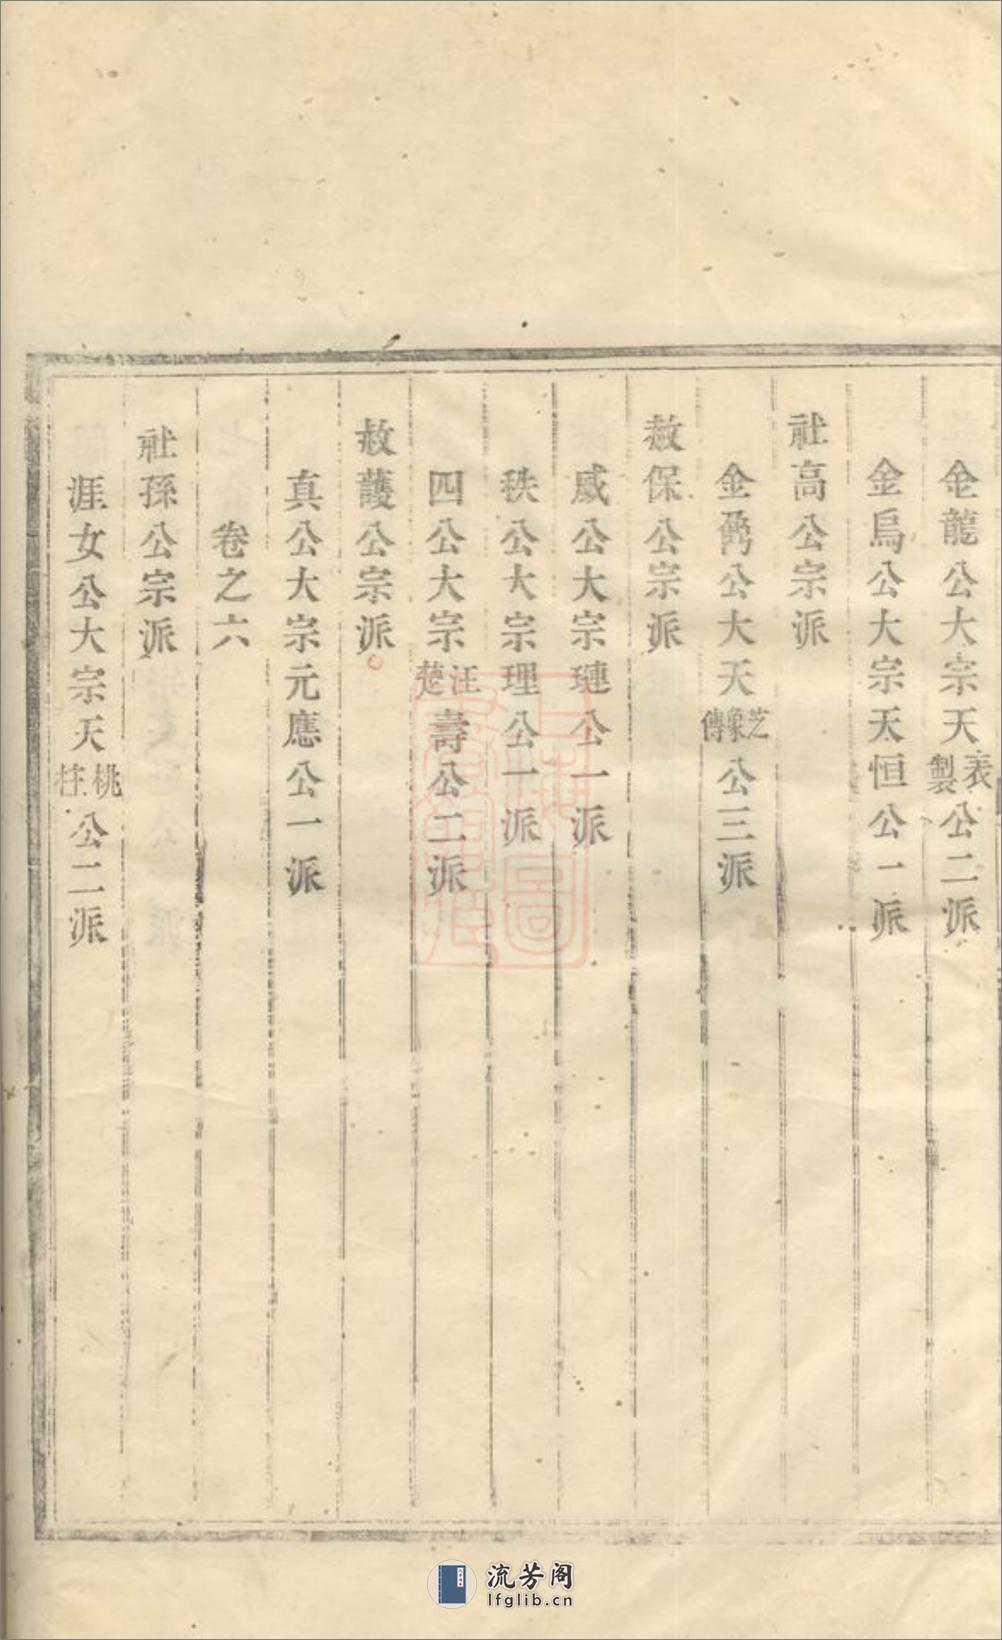 金龍公大宗天表製公二派
金烏公大宗天恒公一派
社高公宗派
金公大天芝象傳公三派
赦保公宗派
威公大宗璉公一派
秩公大宗理公一派
四公大宗汪楚壽公二派
赦護公宗派
真公大宗元應公一派
卷之六
社孫公宗派
涯女公大宗天桃柱公二派
流芳阁
lfglib.cn